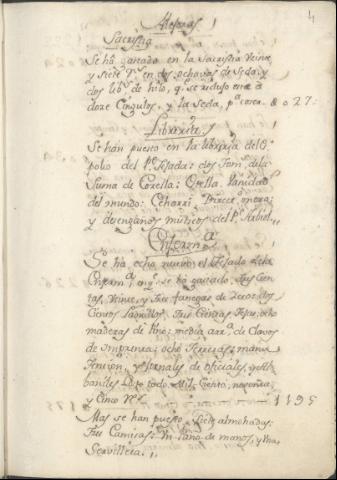 4
Mejoras
Sacristia
Se hà gastado en la Sacristia Veinte
y siete r.s en dos ochavas de Seda, y
dos lib.s de hilo, q. se reduxo en
doze Cingulos, y la Seda, p.a coser. & 027:
Libreria
Se han puesto en la libreria del
polio del P. Posada: dos Tom.s de la
Suma de Corella: Vanidad
del mundo: Echarri: Director moral:
y desengaños misticos del P. Arbiol.
Enferm.a
Se hà echo nuevo el
Enferm.a en q. se hà gastado, tres Cen-
tas, Veinte, y tres fanegas de Yeso: dos
Cientos Ladrillos, tres Cientas Tejas, ocho
maderas de Pino: media arr.a de Clavos
de ocho manu-
tencion, y Jornales de oficiales, y Al-
bañiles Todo Mil, Ciento, noventa,
y Cinco R.s 1195
Mas se han puesto, Siete almohadas:
Tres Camisas: Un Paño de manos, y Una
Servilleta.